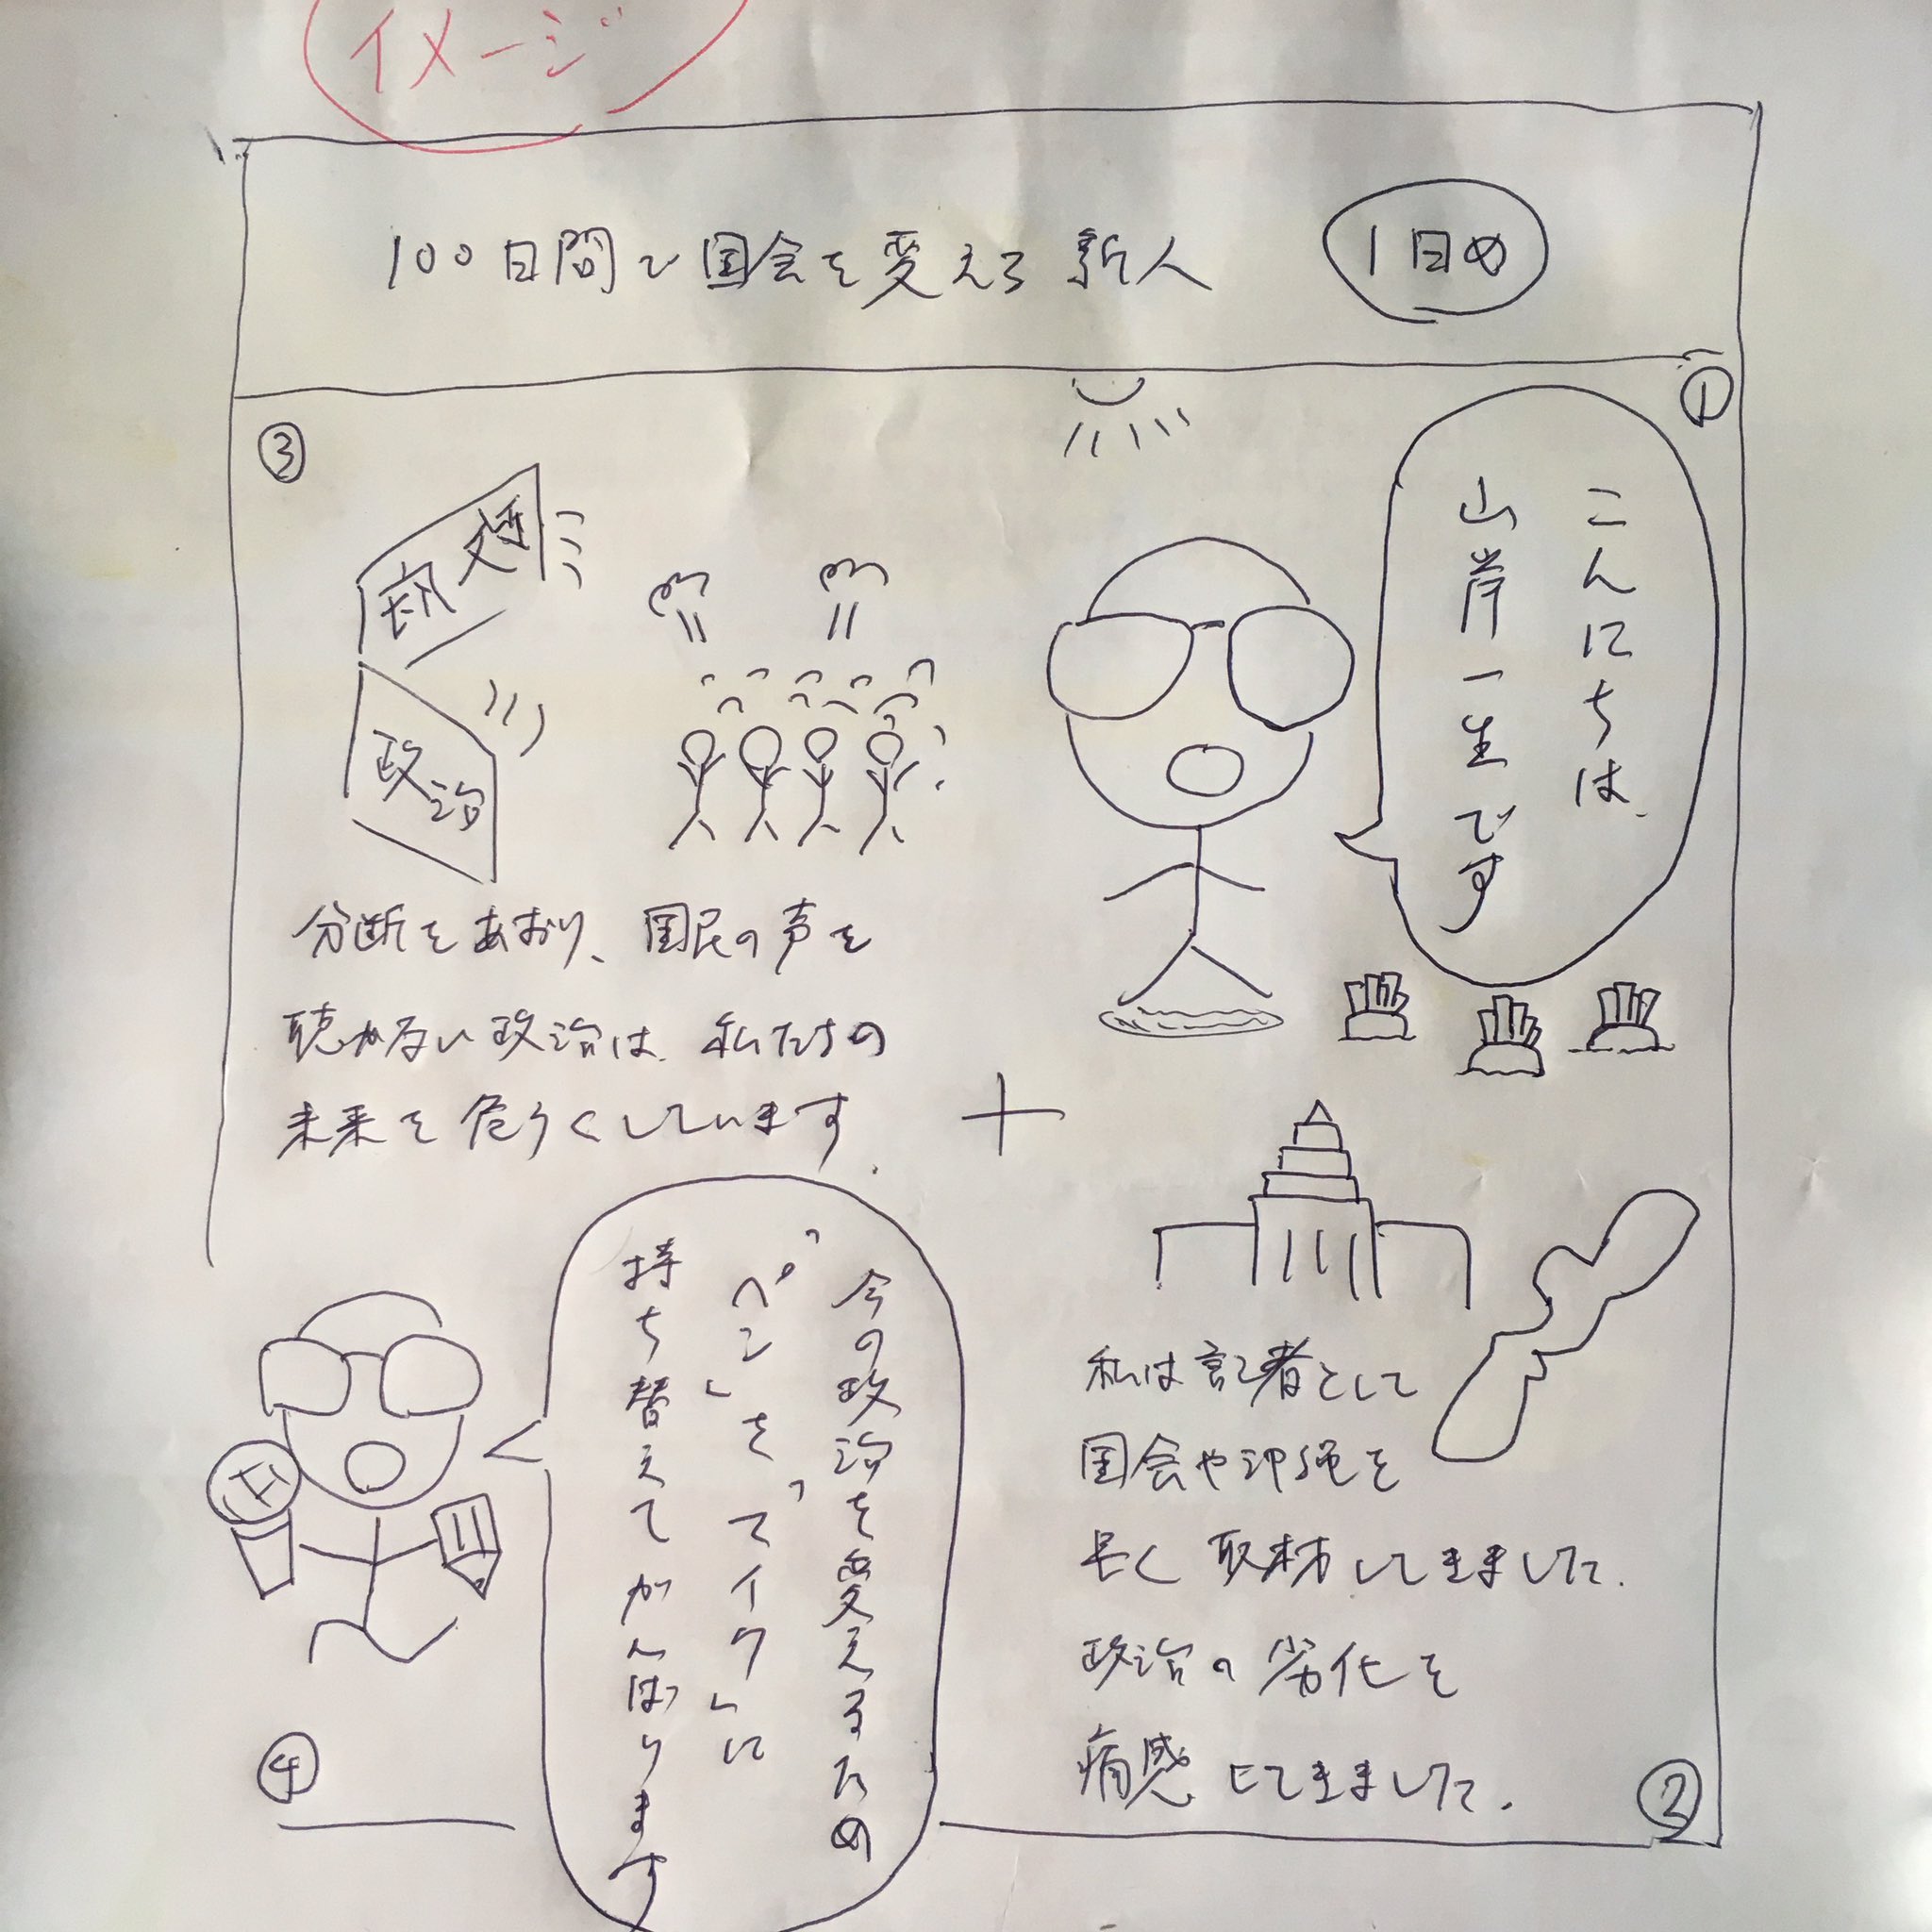 イメージ
100日間で国会を変える新人
1日め
①
こんにちは、
山岸一生です
私は記者として
国会や沖縄を
長く取材してきました。
政治の劣化を
痛感してきました。
②
③
政治
分断をあおり、国民の声を
聴かない政治は、私たちの
未来を危うくしています。
今の政治を変えるため
「ペン」を「マイク」に
持ち替えてがんばります
④